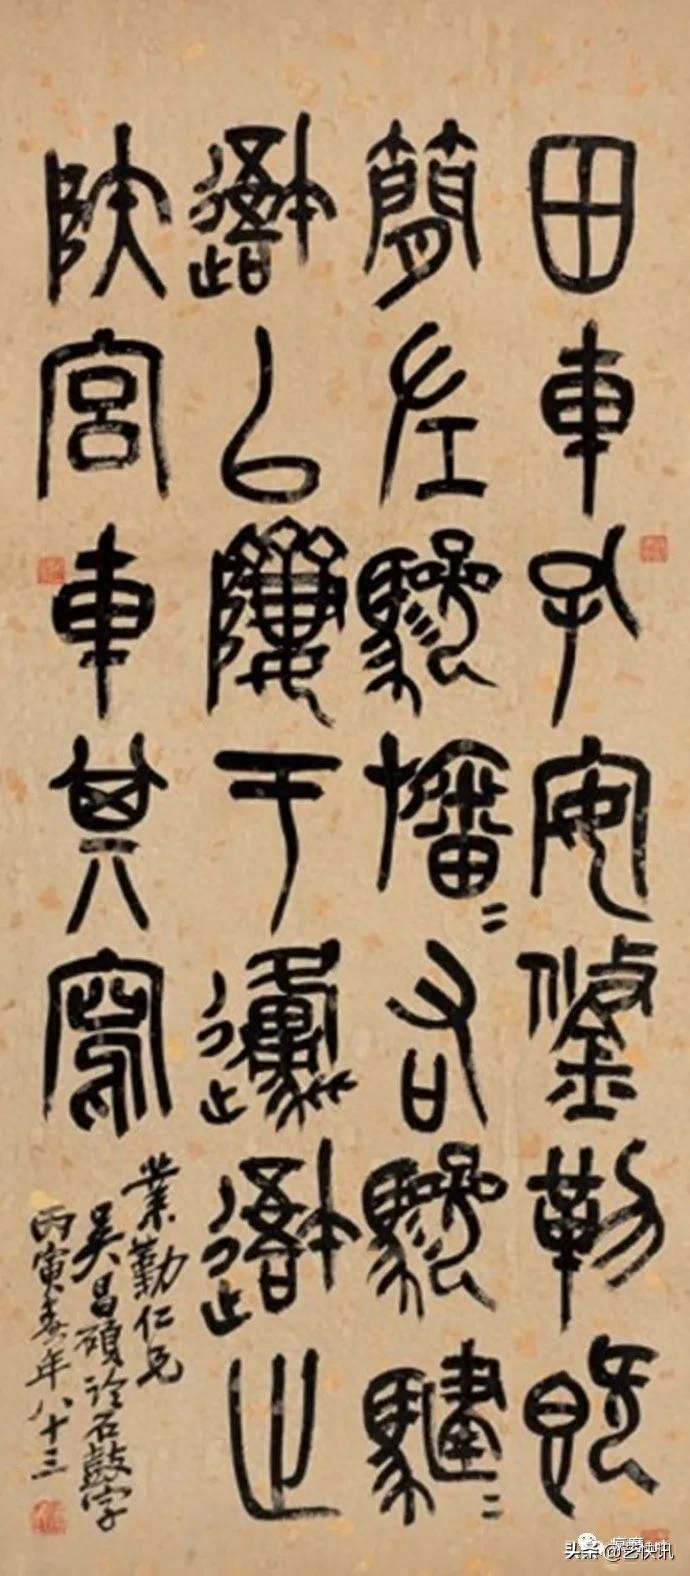 田車孔安鋚勒既
簡左驂旛〻右驂騝〻
吾以隮于邍吾止
陕宮車其寫
業勤仁兄
吳昌碩臨石鼓字
丙寅春年八十三
头条@艺快讯